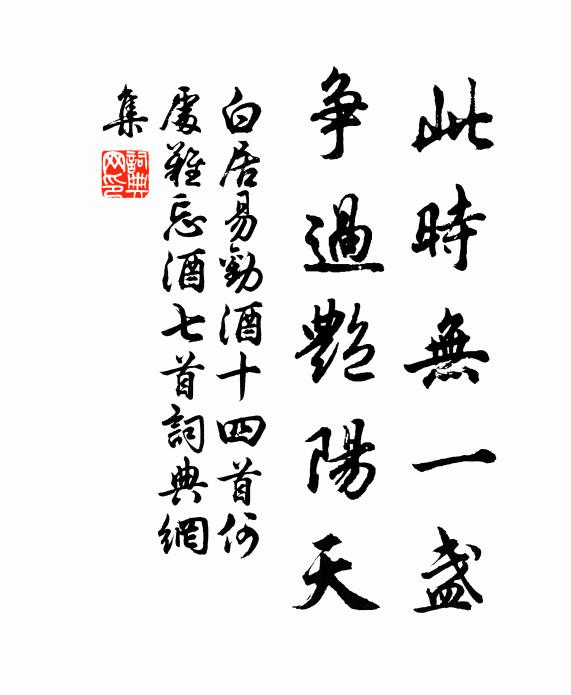 此時無一盞
争過艷陽天
白居易勸酒十四首何
處難忘酒七首詞典網
集
詞典
网印